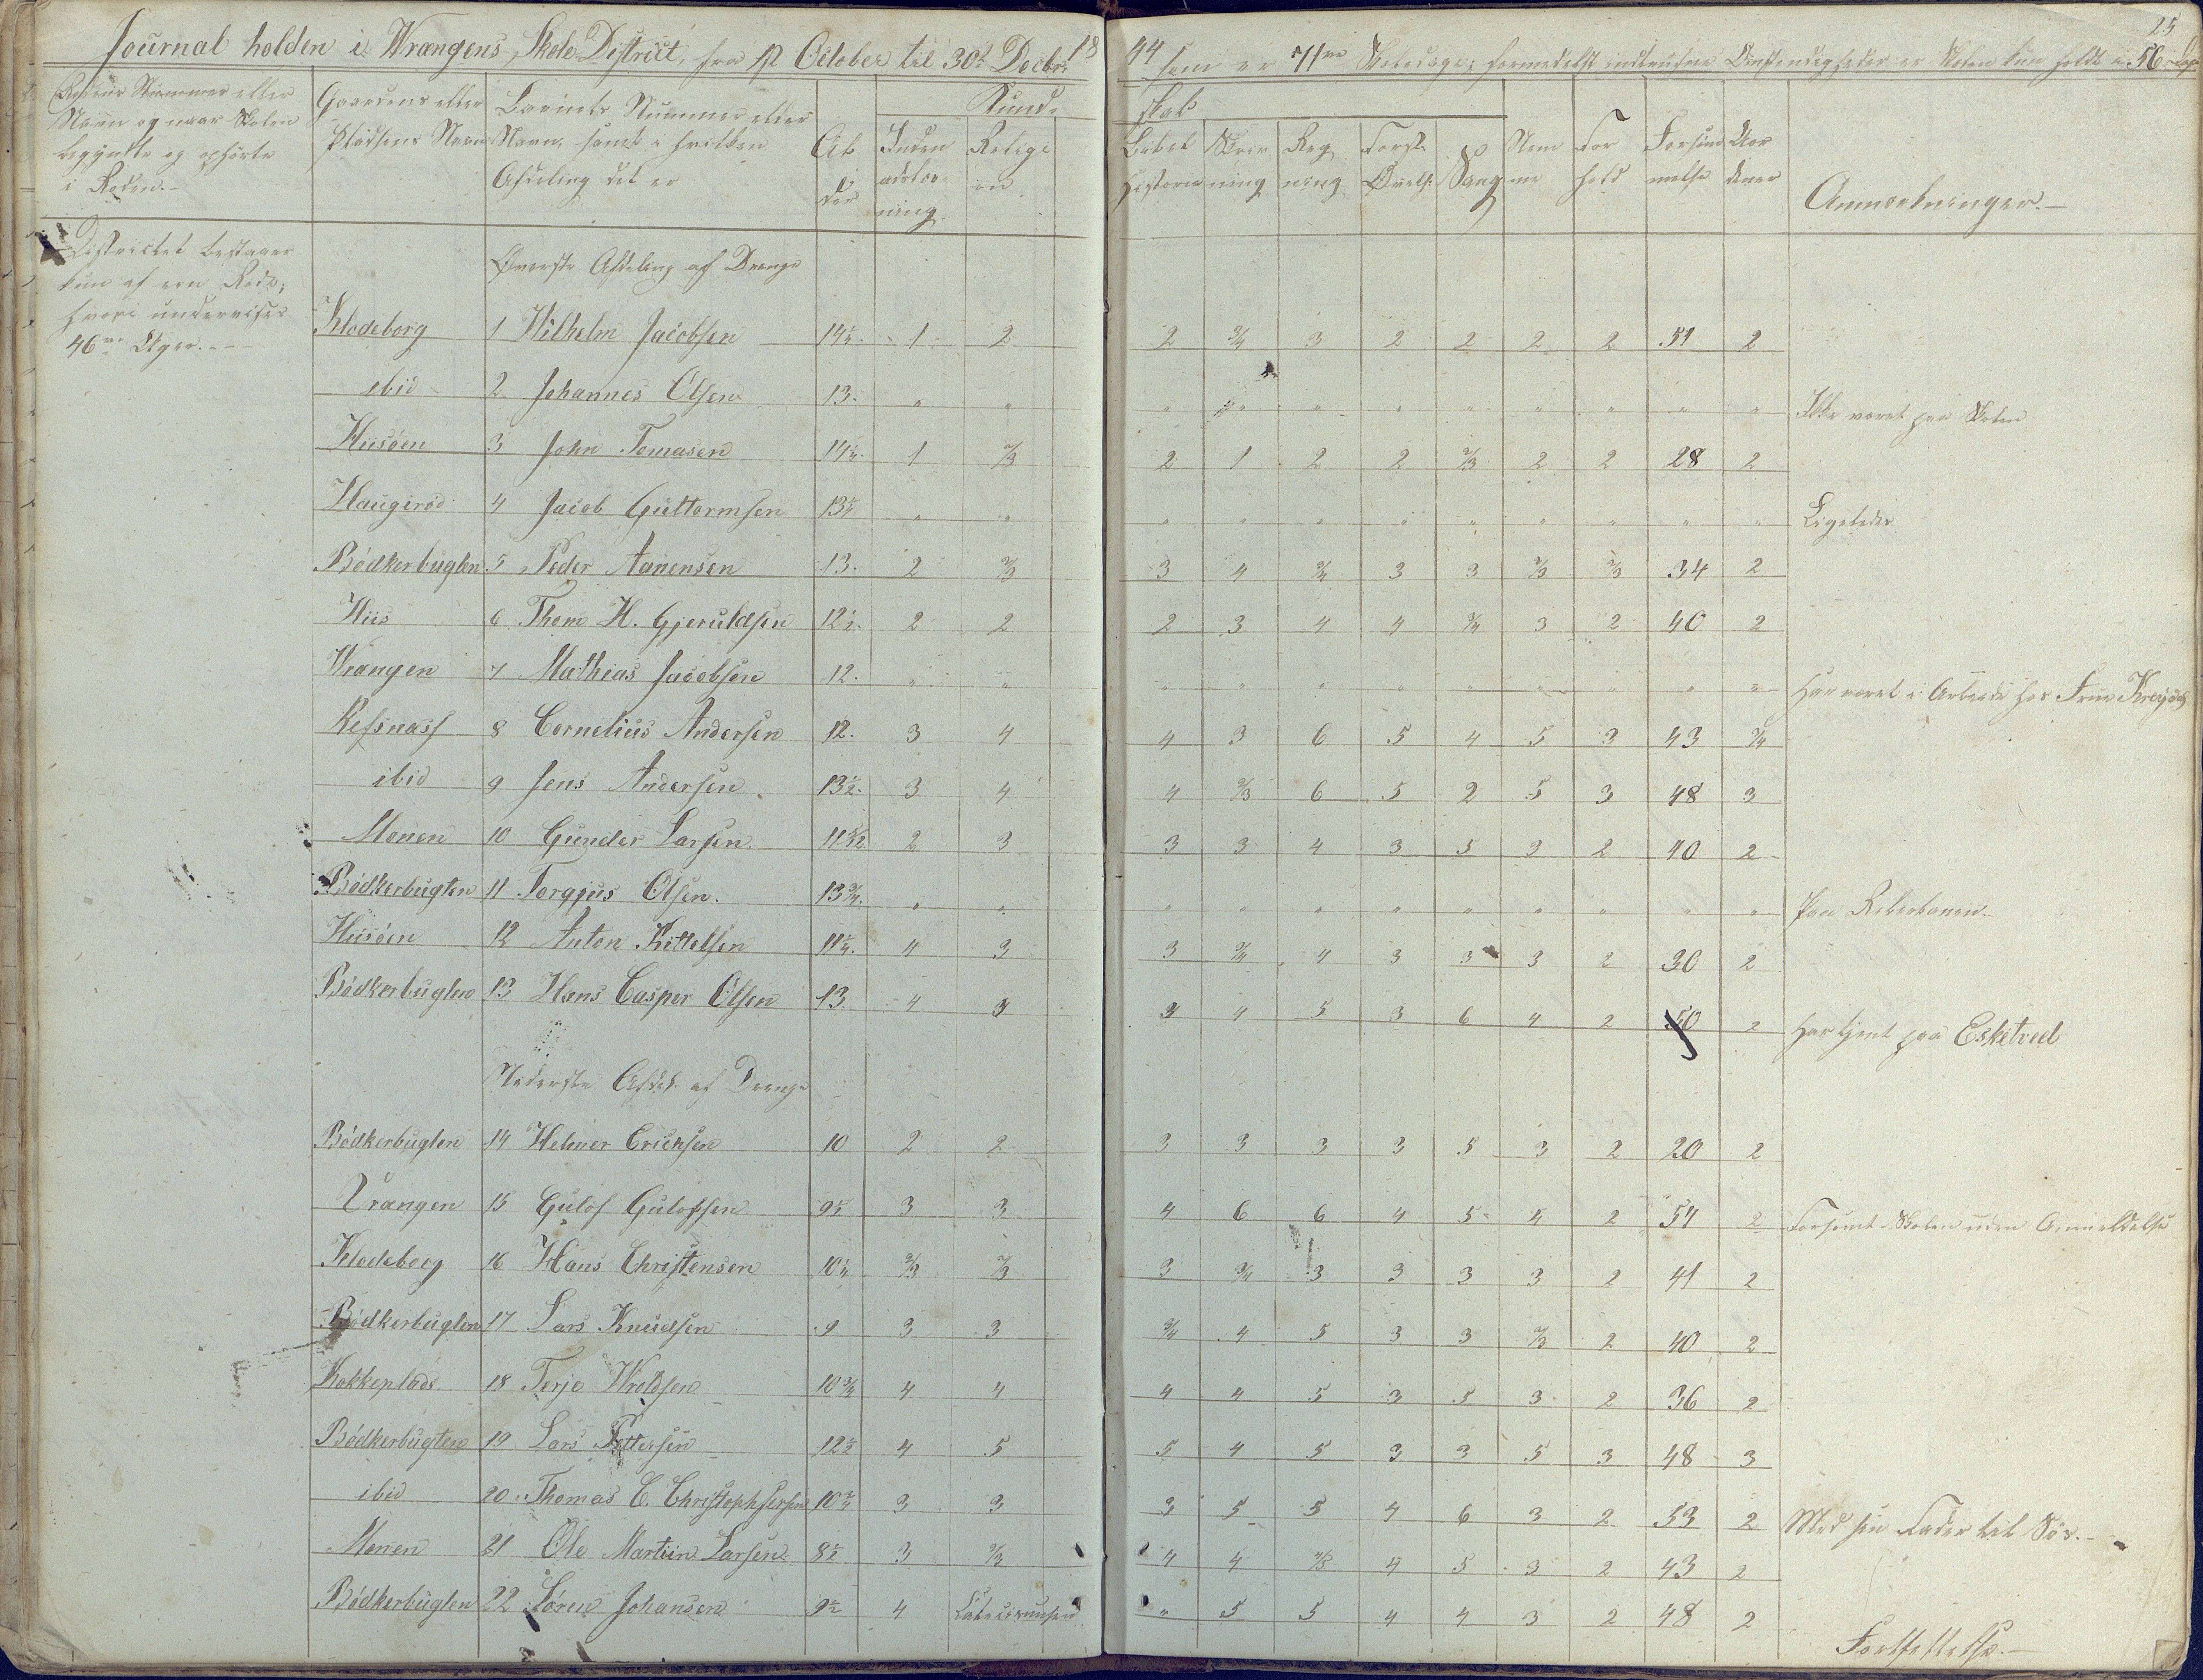 25
Journal holden i Wrangens Skole-District, fra 1st October til 30te Decbr 1844 som er 71ve Skoledage; formedelst indtrufne Omstændigheder er Skolen kun holdt i 56 Dage
Rodens Nummer eller Navn og naar Skolen begyndte og ophørte i Roden.-
Gaardens eller Pladsens Navn
Barnets Nummer eller Navn, samt i hvilken Afdeling det er
Alder
Kundskab
Indenadslæsning.
Religion
Bibelhistorie
Skrivning
Regning
Forst. Øvelse
Sang
Nemme
For hold
Forsømmelse
Anmærkninger.-
Districtet bestaaer
kun af een Rode;
hvori undervises
46ve Uger.--
Øverste Afdeling af Drenge
Klodeborg 1 Wilhelm Jacobsen 14¼. 1 2 2 ¾ 3 2 2 2 2 51 2
ibid 2 Johannes Olsen 13. " " " " " " " " " " " Ikke været paa Skolen
Hiisöen 3 John Tomasen 14¼. 1 2/3 2 1 2 2 2/3 2 2 28 2
Haugerød 4 Jacob Guttormsen 13½ " " " " " " " " " " " Ligeledes
Bödkerbugten 5 Peder Aanensen 13. 2 2/3 3 4 ¾ 3 3 2/3 2/3 34 2
Hiis 6 Thom H. Gjeruldsen 12½. 2 2 2 3 4 4 ¾ 3 2 40 2
Wrangen 7 Mathias Jacobsen 12. " " " " " " " " " " " Har været i Arbeide hos Frue
Refsnæss 8 Cornelius Andersen 12. 3 4 4 3 6 5 4 5 3 43 ¾
ibid 9 Jens Andersen. 13½. 3 4 4 2/3 6 5 2 5 3 48 3
Monen 10 Gunder Larsen. 2 3 3 3 4 3 5 3 2 40 2
Bödkerbugten 11 Torgjus Olsen. 13¾. " " " " " " " " " " " Paa
Hiisöen 12 Anton Kittelsen 11¼. 4 3 3 ¾ 4 3 3 3 2 30 2
Bödkerbugten 13 Hans Casper Olsen 13. 4 3 3 4 5 3 6 4 2 50 2 Har tjent paa Esketveed
Nederste Afdel. af Drenge
Bödkerbugten 14 Helmer Ericksen 10 2 2 3 3 3 3 5 3 2 20 2
Vrangen 15 Gulof Gulofsen 9½ 3 3 4 6 6 4 5 4 2 51 2 Forsømt Skolen uden Anmeldelse
Klodeborg 16 Hans Christensen 10¼ 2/3 2/3 3 ¾ 3 3 3 3 2 41 2
Bödkerbugten 17 Lars Knudsen 9 3 3 ¾ 4 5 3 3 2/3 2 40 2
Kokkeplads. 18 Terje Wroldsen 10¾ 4 4 4 4 5 3 5 3 2 36 2
Bödkerbugten 19 Lars Pettersen 12½ 4 5 5 4 5 3 3 5 3 48 3
ibid 20 Thomas C. Christophersen 3 3 3 5 5 4 6 3 2 53 2 Med sin Fader til Søs.-
Monen 21 Ole Martin Larsen 8½ 3 2/3 4 4 4/5 4 5 3 2 43 2
Bödkerbugten 22 Sören Johansen 9½ 4 " 5 5 4 4 3 2 48 2
Fortsettelse.-